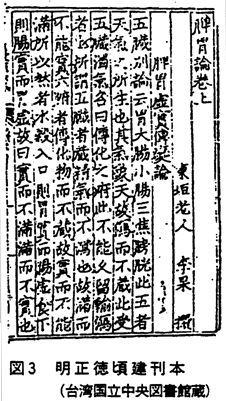 脾胃論卷上
東垣老人 李杲 撰
脾胃虛實傳變論
五臟別論云胃大腸小腸三焦膀胱此五者
天氣之所生也其氣象天故瀉而不藏此受
五臟濁氣名曰傳化之府此不能久留輸瀉
者也所謂五臟者藏精氣而不瀉也故滿而
不能實六腑者傳化物而不藏故實而不能
滿所以然者水穀入口則胃實而腸虛食下
則腸實而胃虛故曰實而不滿滿而不實也
図3 明正徳頃建刊本
(台湾国立中央図書館蔵)